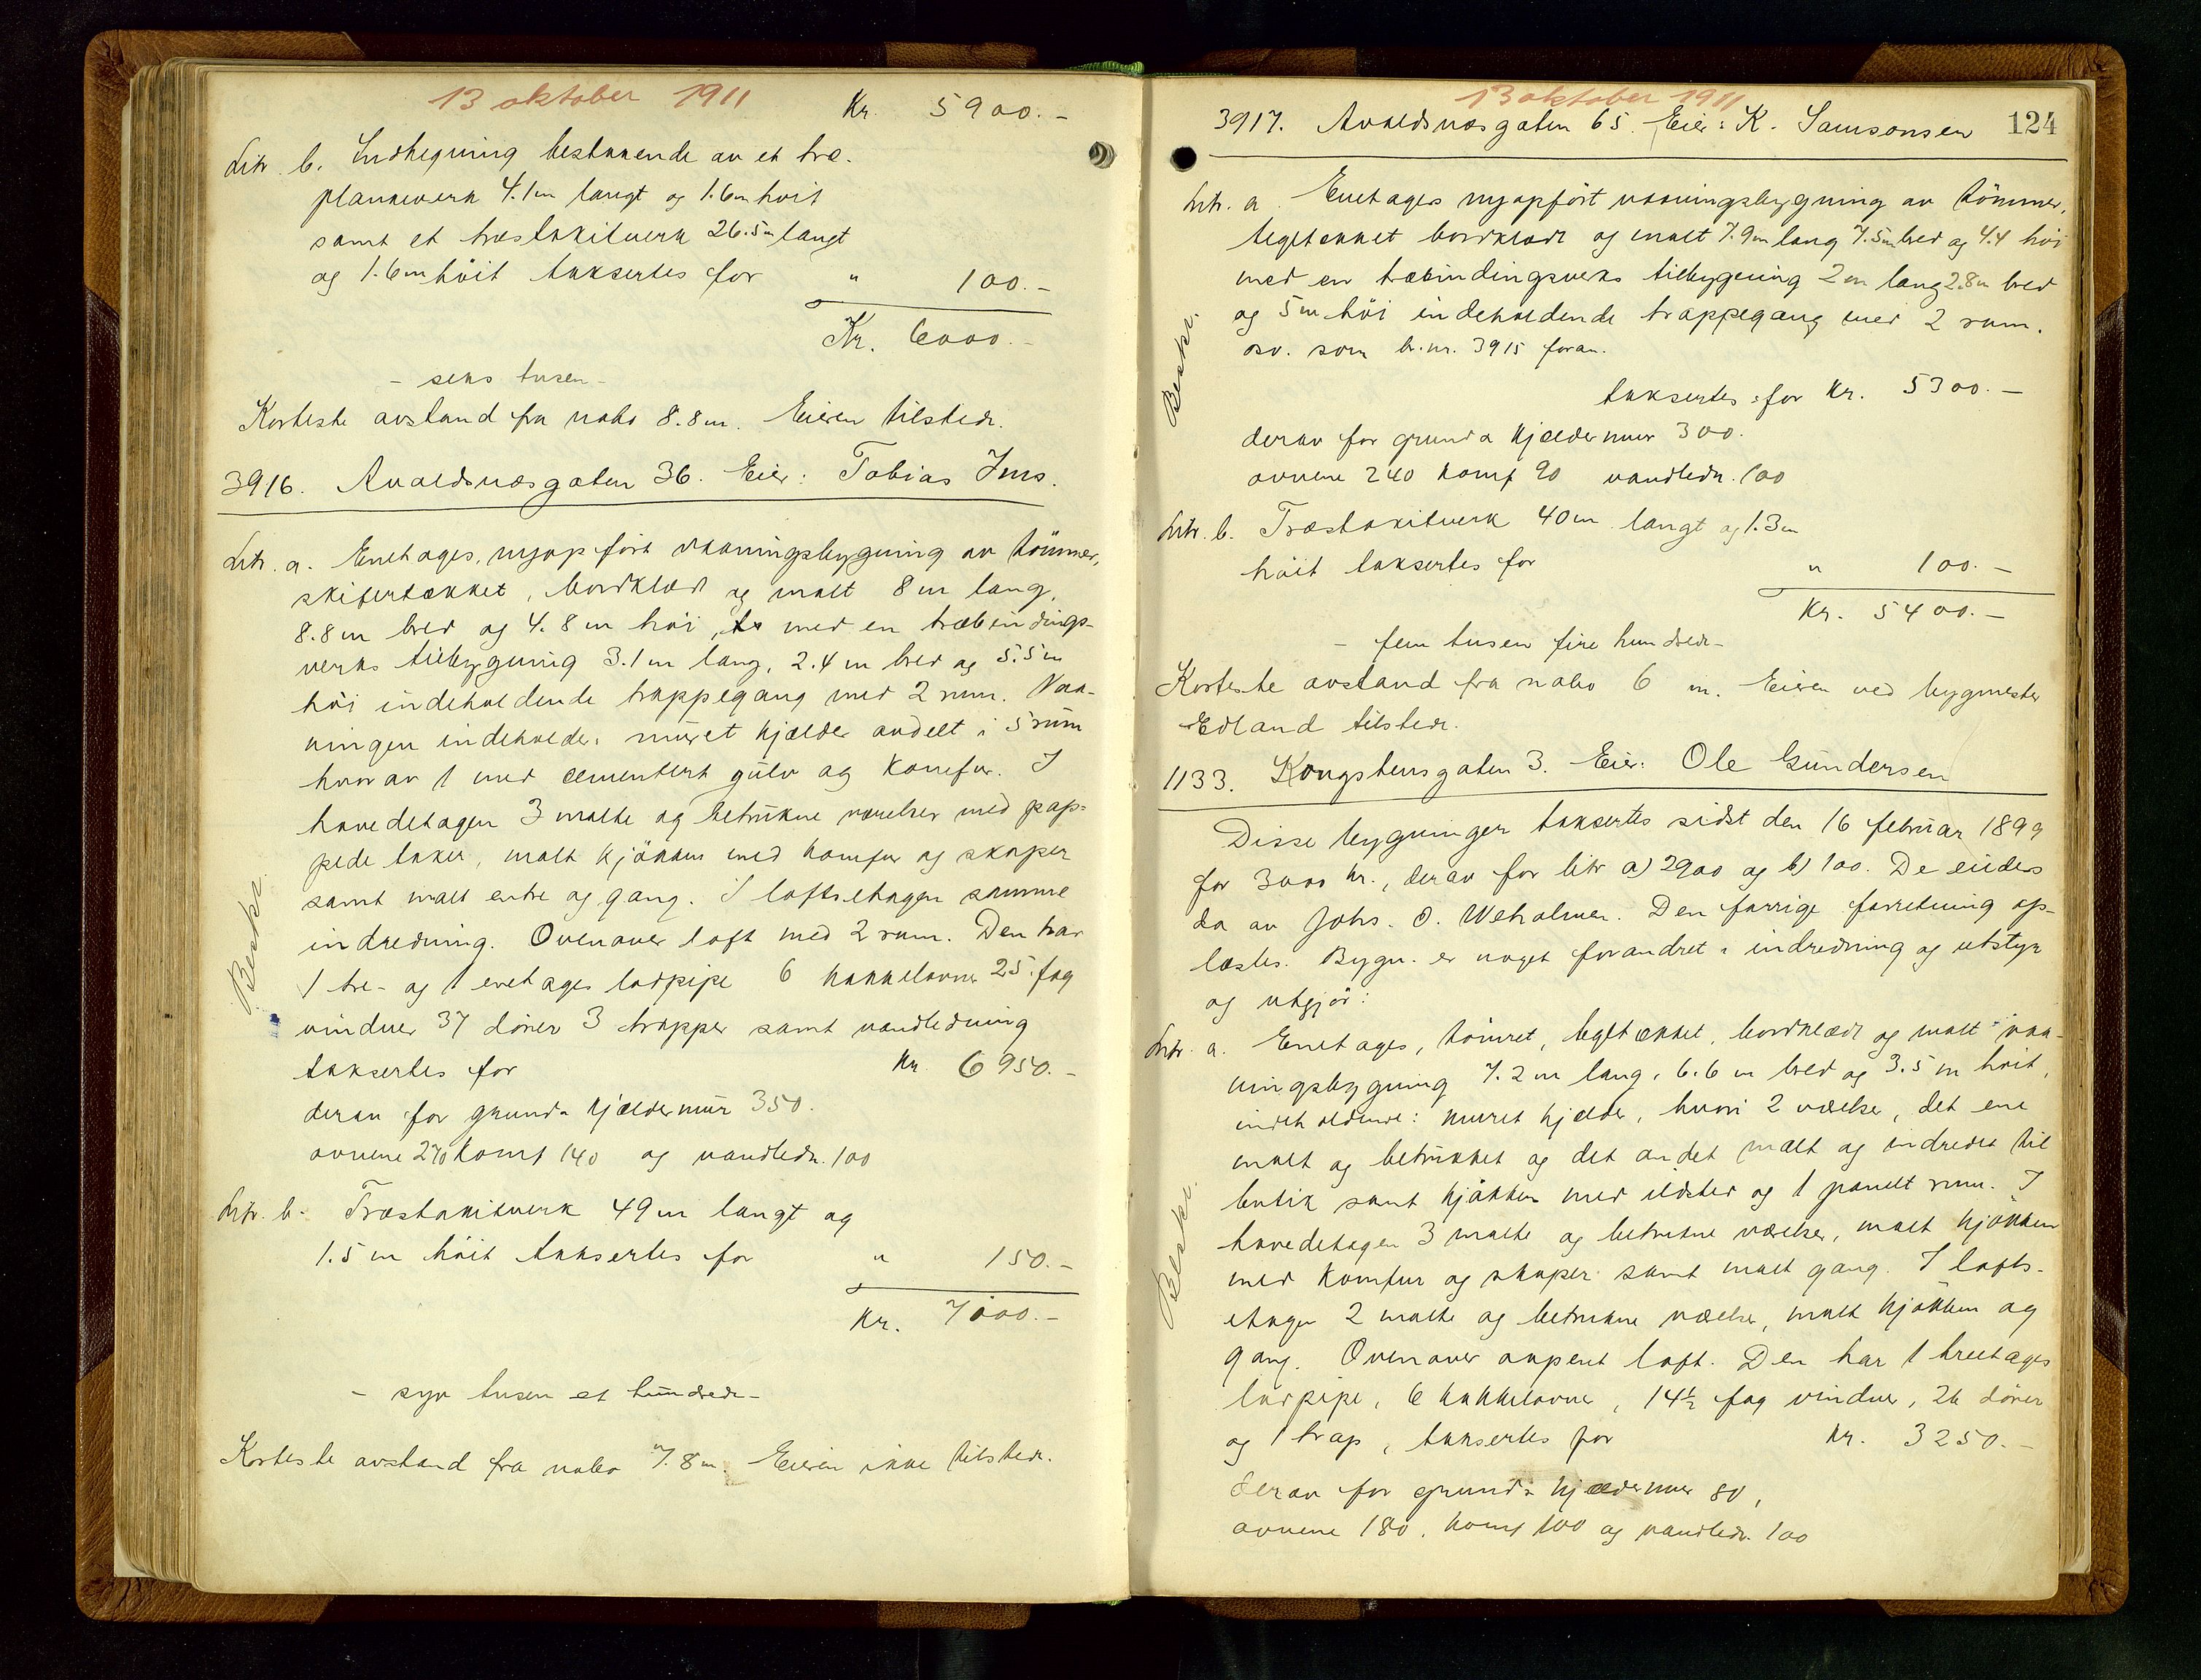 13 oktober 1911
Kr. 5900.-
Litr. b. Indhegning bestaaende av et træ-
plankeverk 4.1m langt og 1.6m höit
samt et træstakitverk 26.5m langt
og 1.6m höit taksertes for " 100.-
Kr. 6000.-
- seks tusen -
Korteste avstand fra nabo 8.8m. Eieren tilstede.
3916. Avaldsnæsgaten 36. Eier: Tobias Ims.
Litr. a. Enetages, nyopfört vaaningsbygning av tömmer,
skifertækket, bordklædt og malt 8m lang,
8.8m bred og 4.8m höi, med en træbindings-
verks tilbygning 3.1m lang, 2.4m bred og 5.5m
höi indeholdende trappegang med 2 rum. Vaa-
ningen indeholder: muret kjælder avdelt i 5 rum
hvorav 1 med cementert gulv og komfur. I
hovedetagen 3 malte og betrukne værelser med gip-
sede taker, malt kjökken med komfur og skaper
samt malt entre og gang. I loftsetagen samme
indredning. Ovenover loft med 2 rum. Den har
1 tre- og 1 enetages lodpipe 6 kakkelovne 25 fag
vinduer 37 dörer 3 trapper samt vandledning
taksertes for Kr. 6950.-
derav for grund & kjældermur 350.
ovnene 270 komf 140 og vandledn. 100
Litr. b. Træstakitverk 49m langt og
1.5m höit taksertes for " 150.-
Kr. 7100.-
- syv tusen et hundrede -
Korteste avstand fra nabo 7.8m. Eieren ikke tilstede.
Beskr.
13 oktober 1911
124
3917. Avaldsnæsgaten 65. Eier: K. Samsonsen
Litr. a. Enetages nyopfört vaaningsbygning av tömmer,
tegltækket bordklædt og malt 7.9m lang 7.5m bred og 4.4 höi
med en træbindingsverks tilbygning 2m lang 2.8m bred
og 5m höi indeholdende trappegang med 2 rum.
osv. som br.nr. 3915 foran.
taksertes for Kr. 5300.-
derav for grund & kjældermur 300.
ovnene 240 komf 90 vandledn. 100
Litr. b. Træstakitverk 40m langt og 1.3m
höit taksertes for " 100.-
Kr. 5400.-
- fem tusen fire hundrede -
Korteste avstand fra nabo 6 m. Eieren ved bygmester
Edland tilstede.
Beskr.
1133. Kongstensgaten 3. Eier: Ole Gundersen
Disse bygninger taksertes sidst den 16 februar 1899
for 3000 kr., derav for litr a) 2900 og b) 100. De eiedes
da av Johs. O. Weholmen. Den forrige forretning op-
læstes. Bygn. er noget forandret i indredning og utstyr
og utgjör:
Litr. a. Enetages, tömret, tegltækket, bordklædt og malt vaa-
ningsbygning 7.2m lang, 6.6m bred og 3.5m höit,
indeholdende: muret kjælder, hvori 2 værelser, det ene
malt og betrukket og det andet malt og indredet til
butik samt kjökken med ildsted og 1 panelt rum. I
hovedetagen 3 malte og betrukne værelser, malt kjökken
med komfur og skaper samt malt gang. I lofts-
etagen 2 malte og betrukne værelser, malt kjökken og
gang. Ovenover aapent loft. Den har 1 treetages
lodpipe, 6 kakkelovne, 14½ fag vinduer, 26 dörer
og 1 trap, taksertes for Kr. 3250.-
derav for grund & kjældermur 80,
ovnene 180, komf 100 og vandledn. 100
Beskr.